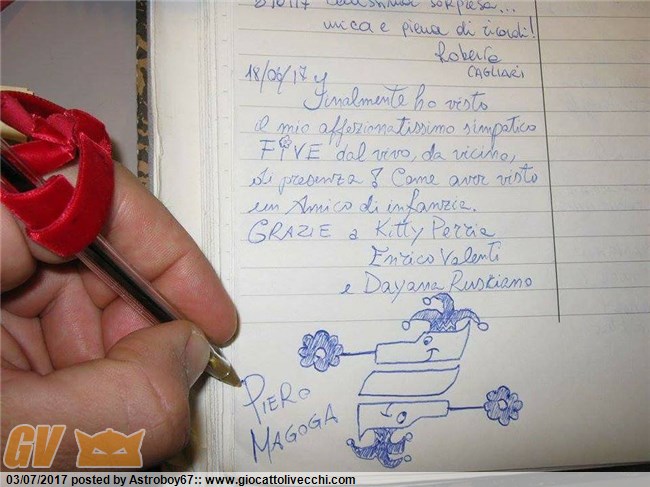 sorpresa...
ricca e piena di ricordi!
Roberta
CAGLIARI
18/06/17
Finalmente ho visto
il mio affezionatissimo simpatico
FIVE dal vivo, da vicino,
di presenza! Come aver visto
un Amico di infanzia.
GRAZIE a Kitty Perria
Enrico Valenti
e Dayana Rusciano
PIERO
MAGOGA
GV
03/07/2017 posted by Astroboy67:: www.giocattolivecchi.com